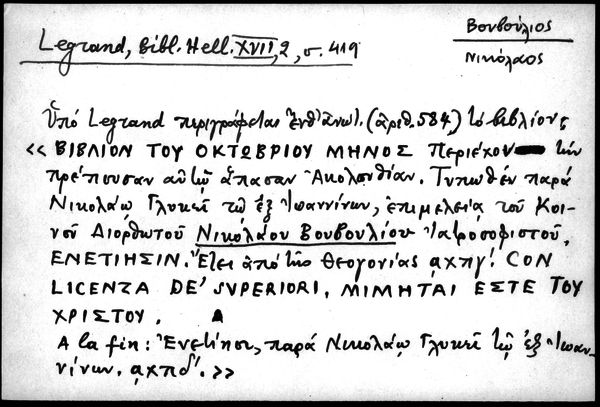 Βουβούλιος
Νικόλαος
Legrand, Bibl. Hell. XVII, 2, σ. 419
Ὑπό Legrand περιγράφεται ἐνθ' ἀνωτ. (ἀριθ. 584) τό βιβλίον:
<< ΒΙΒΛΙΟΝ ΤΟΥ ΟΚΤΩΒΡΙΟΥ ΜΗΝΟΣ Περιέχον τήν
πρέπουσαν αὐτῷ ἅπασαν Ἀκολουθίαν. Τυπωθέν παρά
Νικολάῳ Γλυκεῖ τῷ ἐξ Ἰωαννίνων, ἐπιμελείᾳ τοῦ Κοι-
νοῦ Διορθωτοῦ Νικολάου Βουβουλίου Ἰατροσοφιστοῦ,
ΕΝΕΤΙΗΣΙΝ. Ἔτει ἀπό τῆς θεογονίας αχπγ'. CON
LICENZA DE' SVPERIORI, ΜΙΜΗΤΑΙ ΕΣΤΕ ΤΟΥ
ΧΡΙΣΤΟΥ.
A la fin: Ἐνετίησι, παρά Νικολάῳ Γλυκεῖ τῷ ἐξ Ἰωαν-
νίνων. αχπδ'. >>